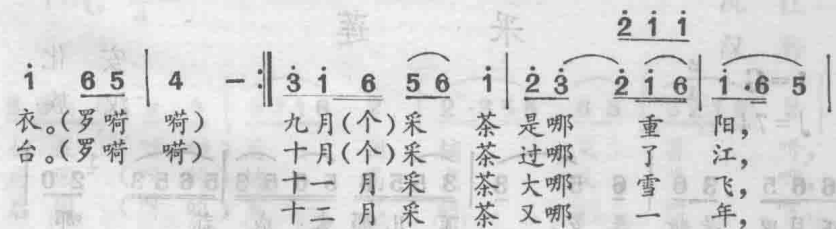 2 1 1
1 6 5 | 4 - :‖ 3 1 6 5 6 1 | 2 3 2 1 6 | 1 · 6 5 |
衣。(罗嗬 嗬) 九月(个)采 茶 是哪 重 阳,
台。(罗嗬 嗬) 十月(个)采 茶 过哪 了 江,
十一 月 采 茶 大哪 雪 飞,
十二 月 采 茶 又哪 一 年,